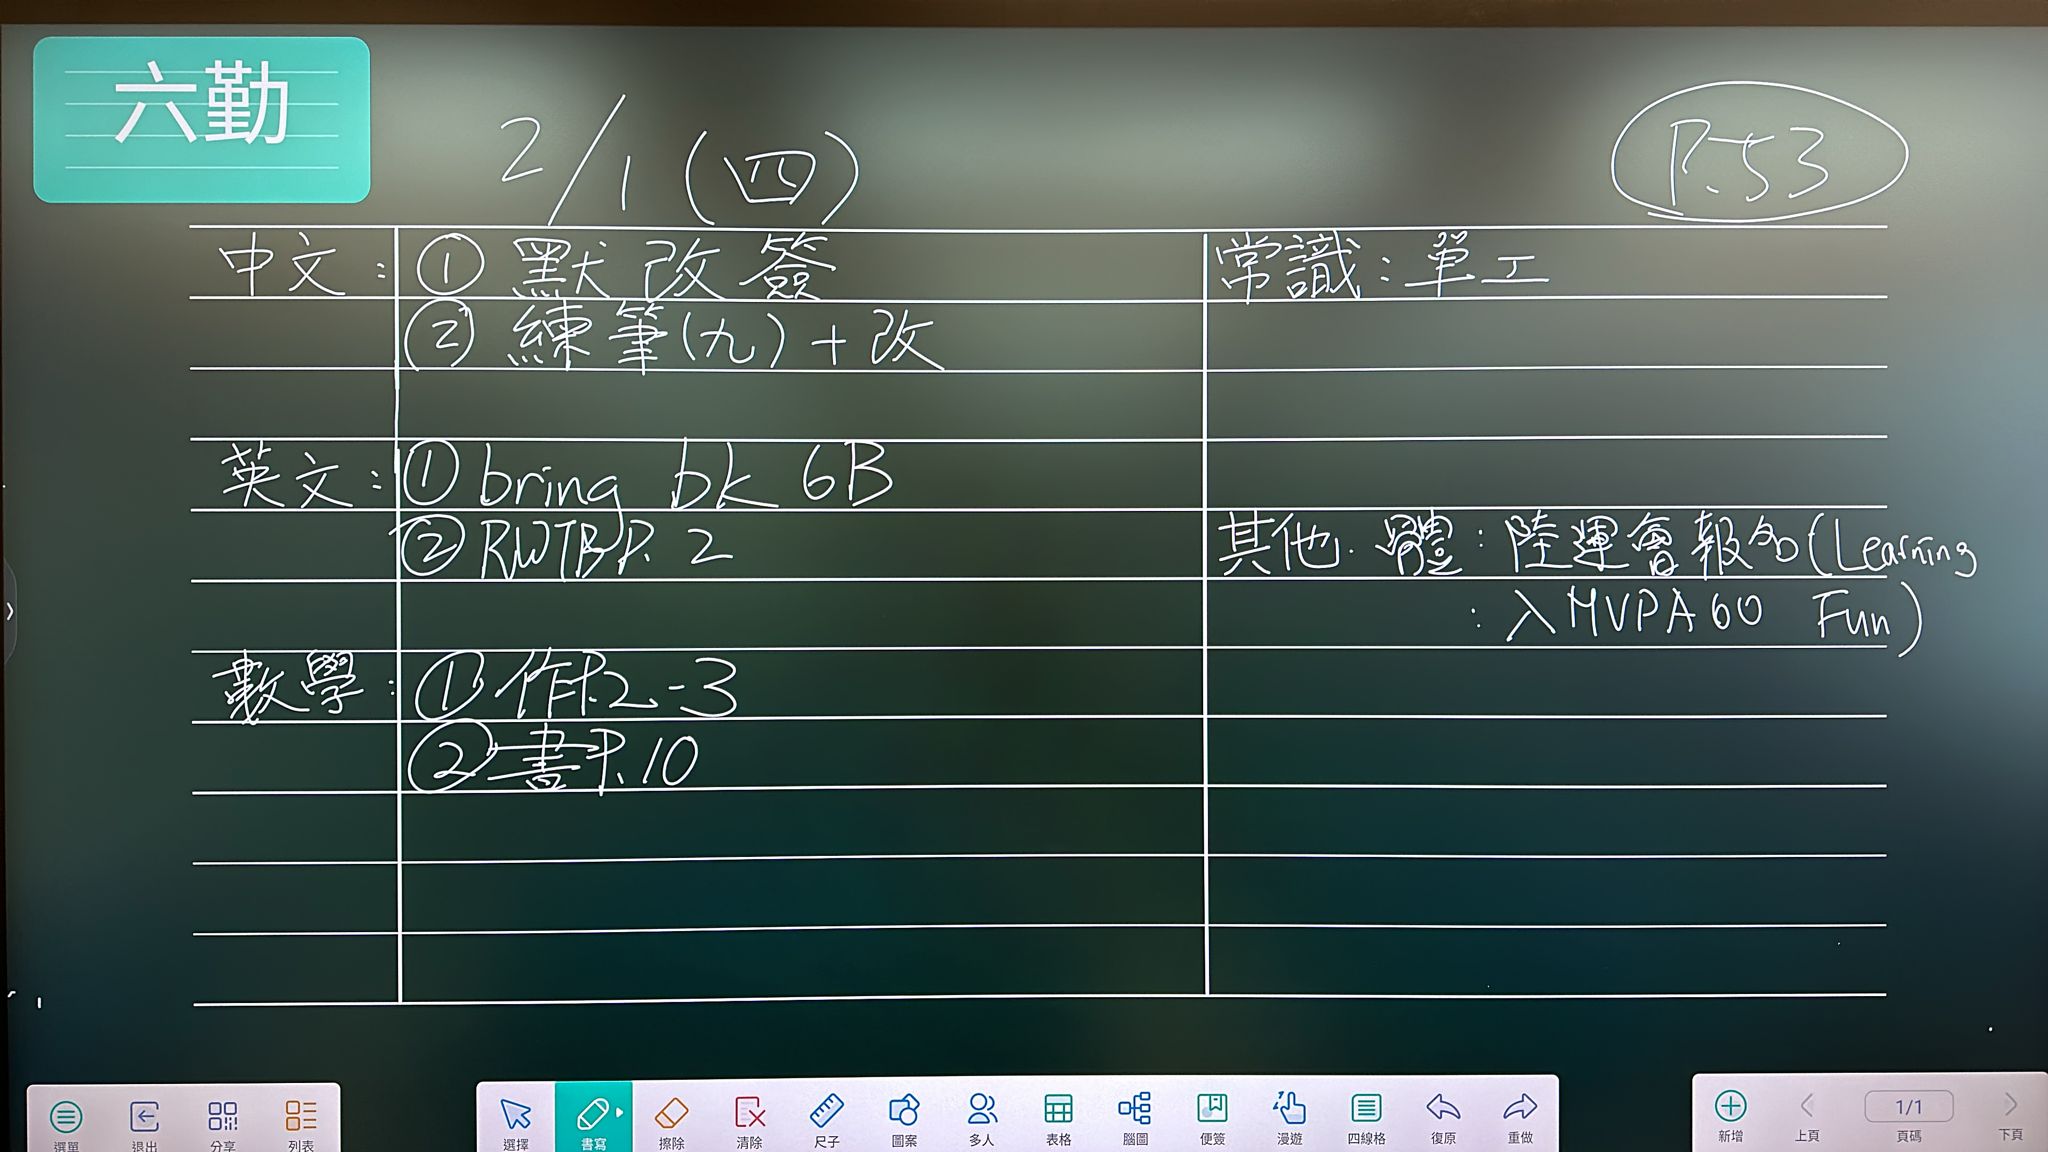 六勤
2/1 (四)
P.53
中文: ① 默改簽
② 練筆(九)+改
英文: ① bring bk 6B
② RWTB P.2
數學: ① 作P.2-3
② 書P.10
常識: 單工
其他. 體: 陸運會報名(Learning
: 入MVPA60 Fun)
選單 退出 分享 列表
選擇 書寫 擦除 清除 尺子 圖案 多人 表格 腦圖 便簽 漫遊 四線格 復原 重做
新增 上頁 1/1 頁碼 下頁